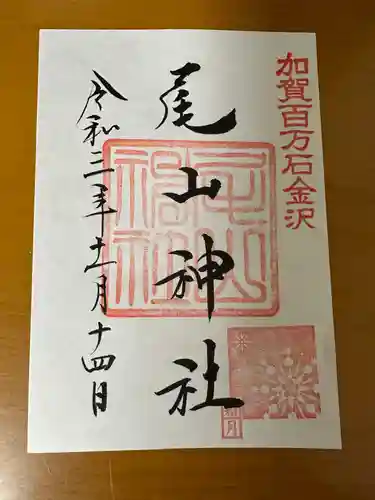 加賀百万石金沢
尾山神社
令和三年十一月十四日
尾山神社